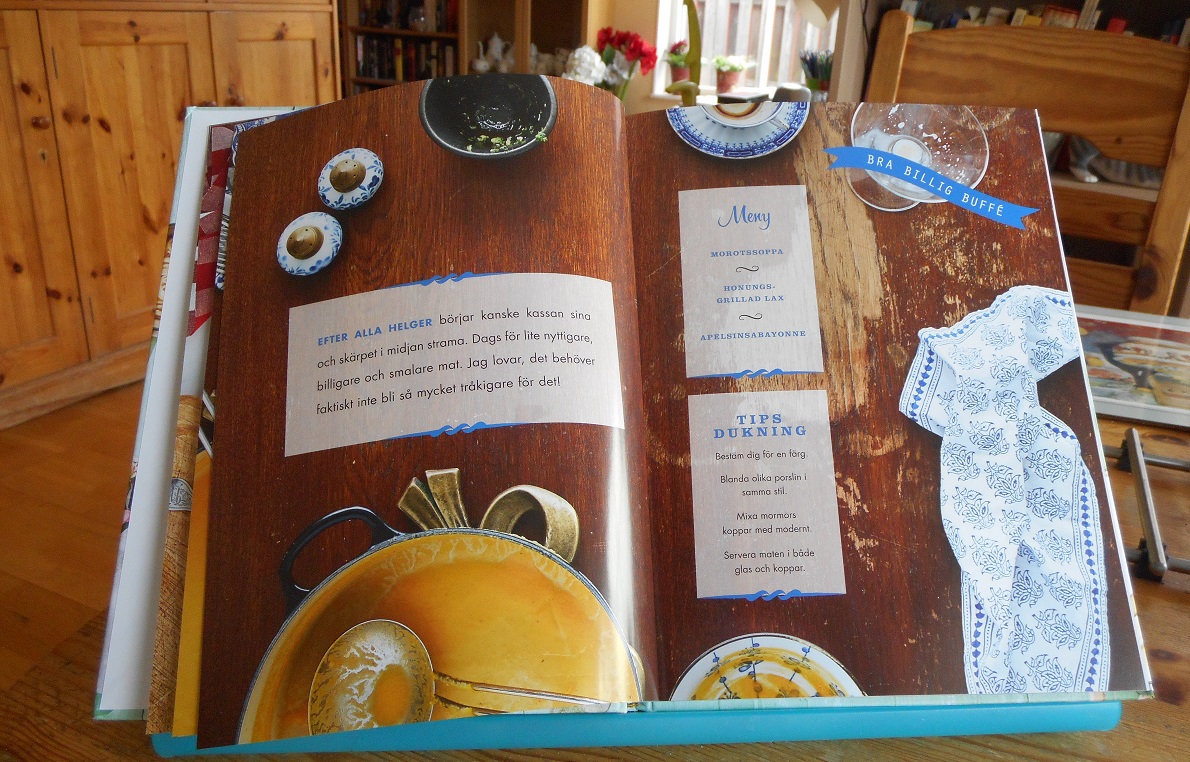 EFTER ALLA HELGER börjar kanske kassan sina
och skärpet i midjan strama. Dags för lite nyttigare,
billigare och smalare mat. Jag lovar, det behöver
faktiskt inte bli så mycket tråkigare för det!
BRA BILLIG BUFFÉ
Meny
MOROTSSOPPA
HONUNGS-
GRILLAD LAX
APELSINSABAYONNE
TIPS
DUKNING
Bestäm dig för en färg.
Blanda olika porslin i
samma stil.
Mixa mormors
koppar med modernt.
Servera maten i både
glas och koppar.